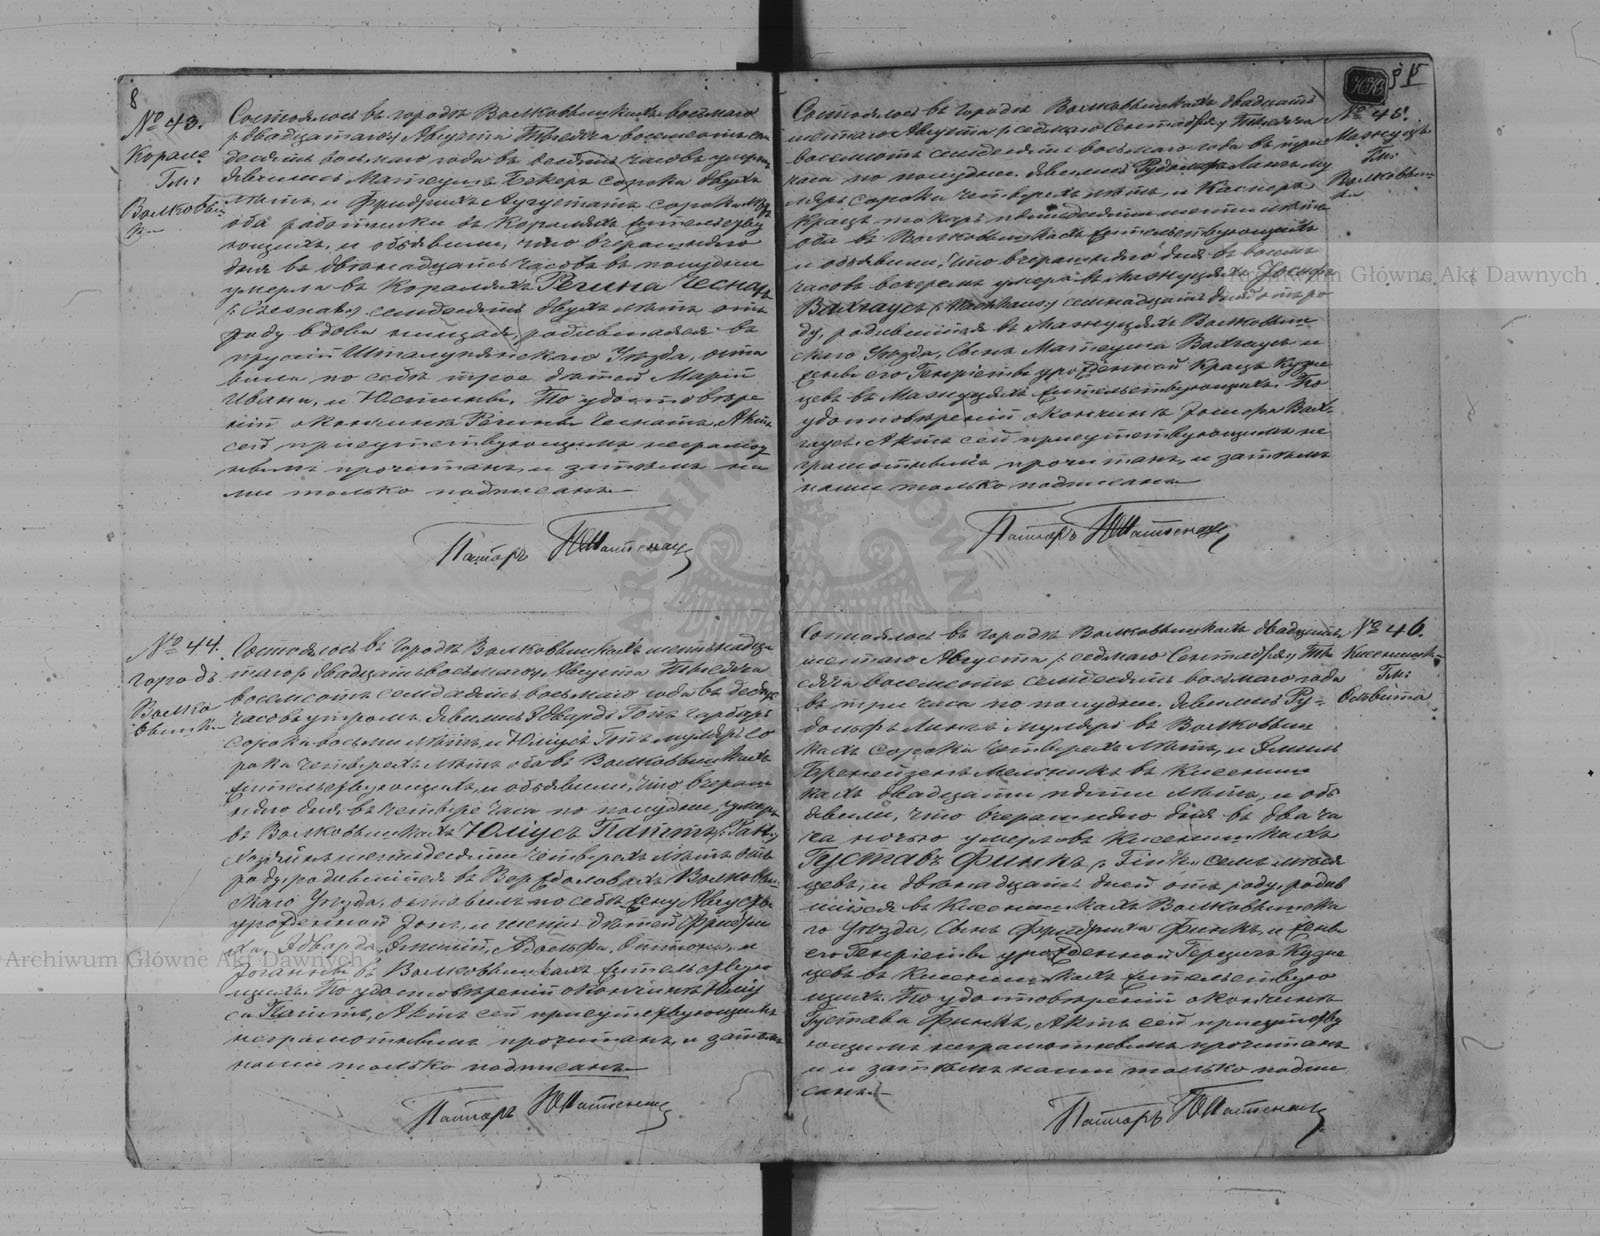 8
№ 43.
Корале
Гми:
Волковы
Состоялось въ городѣ Волковышкахъ восьмаго
/:двадцатаго:/ Августа тысяча восемьсотъ семь
десятъ восьмаго года въ десять часовъ утромъ
Явились Матеушъ Бекеръ сорока двухъ
лѣтъ, и Фридрихъ Аугустатъ сорока лѣтъ
оба работники въ Коралахъ жительству
ющіе, и объявили, что вчерашняго
дня въ двѣнадцать часовъ въ полудни
умерла въ Коралахъ Регина Чеснатъ
семидесяти двухъ лѣтъ отъ
роду вдова нищая, родившаяся въ
Пруссіи Шталупянскаго Уѣзда, оста
вила по себѣ трое дѣтей Марію
Ивана, и Юстину. По удостовѣре
ніи о кончинѣ Регины Чеснатъ, Актъ
сей присутствующимъ неграмот
нымъ прочитанъ, и затѣмъ на
ми только подписанъ.
Пасторъ
№ 44.
городъ
Волко
вышки
Состоялось въ городѣ Волковышкахъ шестьнадца
таго /:двадцать восьмаго:/ Августа тысяча
восемсотъ семдесятъ восьмаго года въ десять
часовъ утромъ. Явились Эдвардъ Готъ гарбаръ
сорока восьми лѣтъ, и Юліусъ Готъ муляръ со
рока четырехъ лѣтъ оба въ Волковышкахъ
жительствующіе, и объявили, что вчераш
няго дня въ четыре часа по полудни, умеръ
въ Волковышкахъ Юліусъ Паттъ /:Patt:/
шестьдесяти четырехъ лѣтъ отъ
роду, родившійся въ Вержболовахъ Волковыш
скаго Уѣзда, оставилъ по себѣ жену Августу
урожденную Гонъ, и шесть дѣтей Фридри
ха, Эдварда, Эмилію, Адольфа, и
Іоганну въ Волковышкахъ жительствую
щихъ. По удостовѣреніи о кончинѣ Юлiу
са Паттъ, Актъ сей присутствующимъ
неграмотнымъ прочитанъ, и затѣмъ
нами только подписанъ.
Пасторъ
№ 45.
Мазуцѣ
Гми:
Волковыш
ки
Состоялось въ городѣ Волковышкахъ двадцать
шестаго Августа /:седмаго Сентября:/ тысяча
восемсотъ семдесятъ восьмаго года въ три
часа по полудни. Явились Рудольфъ Лангъ му
ляръ сорока четырехъ лѣтъ, и Касперъ
Крацъ токарь пятидесяти шести лѣтъ
оба въ Волковышкахъ жительствующіе
и объявили, что вчерашняго дня въ восемь
часовъ вечеромъ умеръ въ Мазуцяхъ Іосифъ
Вахгаусъ /:Wachhaus:/ семнадцать дней отъ ро
ду, родившійся въ Мазуцяхъ Волковыш
скаго Уѣзда, сынъ Матеуша Вахгаусъ и
жены его Генріетты урожденной Крацъ Кузне
цевъ въ Мазуцяхъ жительствующихъ. По
удостовѣреніи о кончинѣ Іосифа Вах-
гаусъ. Актъ сей присутствующимъ не
грамотнымъ прочитанъ, и затѣмъ
нами только подписанъ
Пасторъ
№ 46.
Кисениш
Гми:
Ольвита
Состоялось въ городѣ Волковышкахъ двадцать
шестаго Августа /:седмаго Сентября:/ ты
сяча восемсотъ семдесятъ восьмаго года
въ три часа по полудни. Явились Ру-
дольфъ Лангъ муляръ въ Волковыш
кахъ сорока четырехъ лѣтъ, и Эмиль
Бренейзенъ Мельникъ въ Кисениш
кахъ двадцати пяти лѣтъ, и объ
явили, что вчерашняго дня въ два ча
са ночью умеръ въ Кисенишкахъ
Густавъ Финкъ /:Fink:/ семь мѣся
цевъ, и двѣнадцать дней отъ роду, родив
шійся въ Кисенишкахъ Волковышска
го Уѣзда, сынъ Фридриха Финкъ, и жены
его Генріетты урожденной Герцигъ Кузне
цевъ въ Кисенишкахъ жительствую
щихъ. По удостовѣреніи о кончинѣ
Густава Финкъ, Актъ сей присутству
ющимъ неграмотнымъ прочитанъ
и затѣмъ нами только подпи
санъ.
Пасторъ
Archiwum Główne Akt Dawnych
Archiwum Główne Akt Dawnych